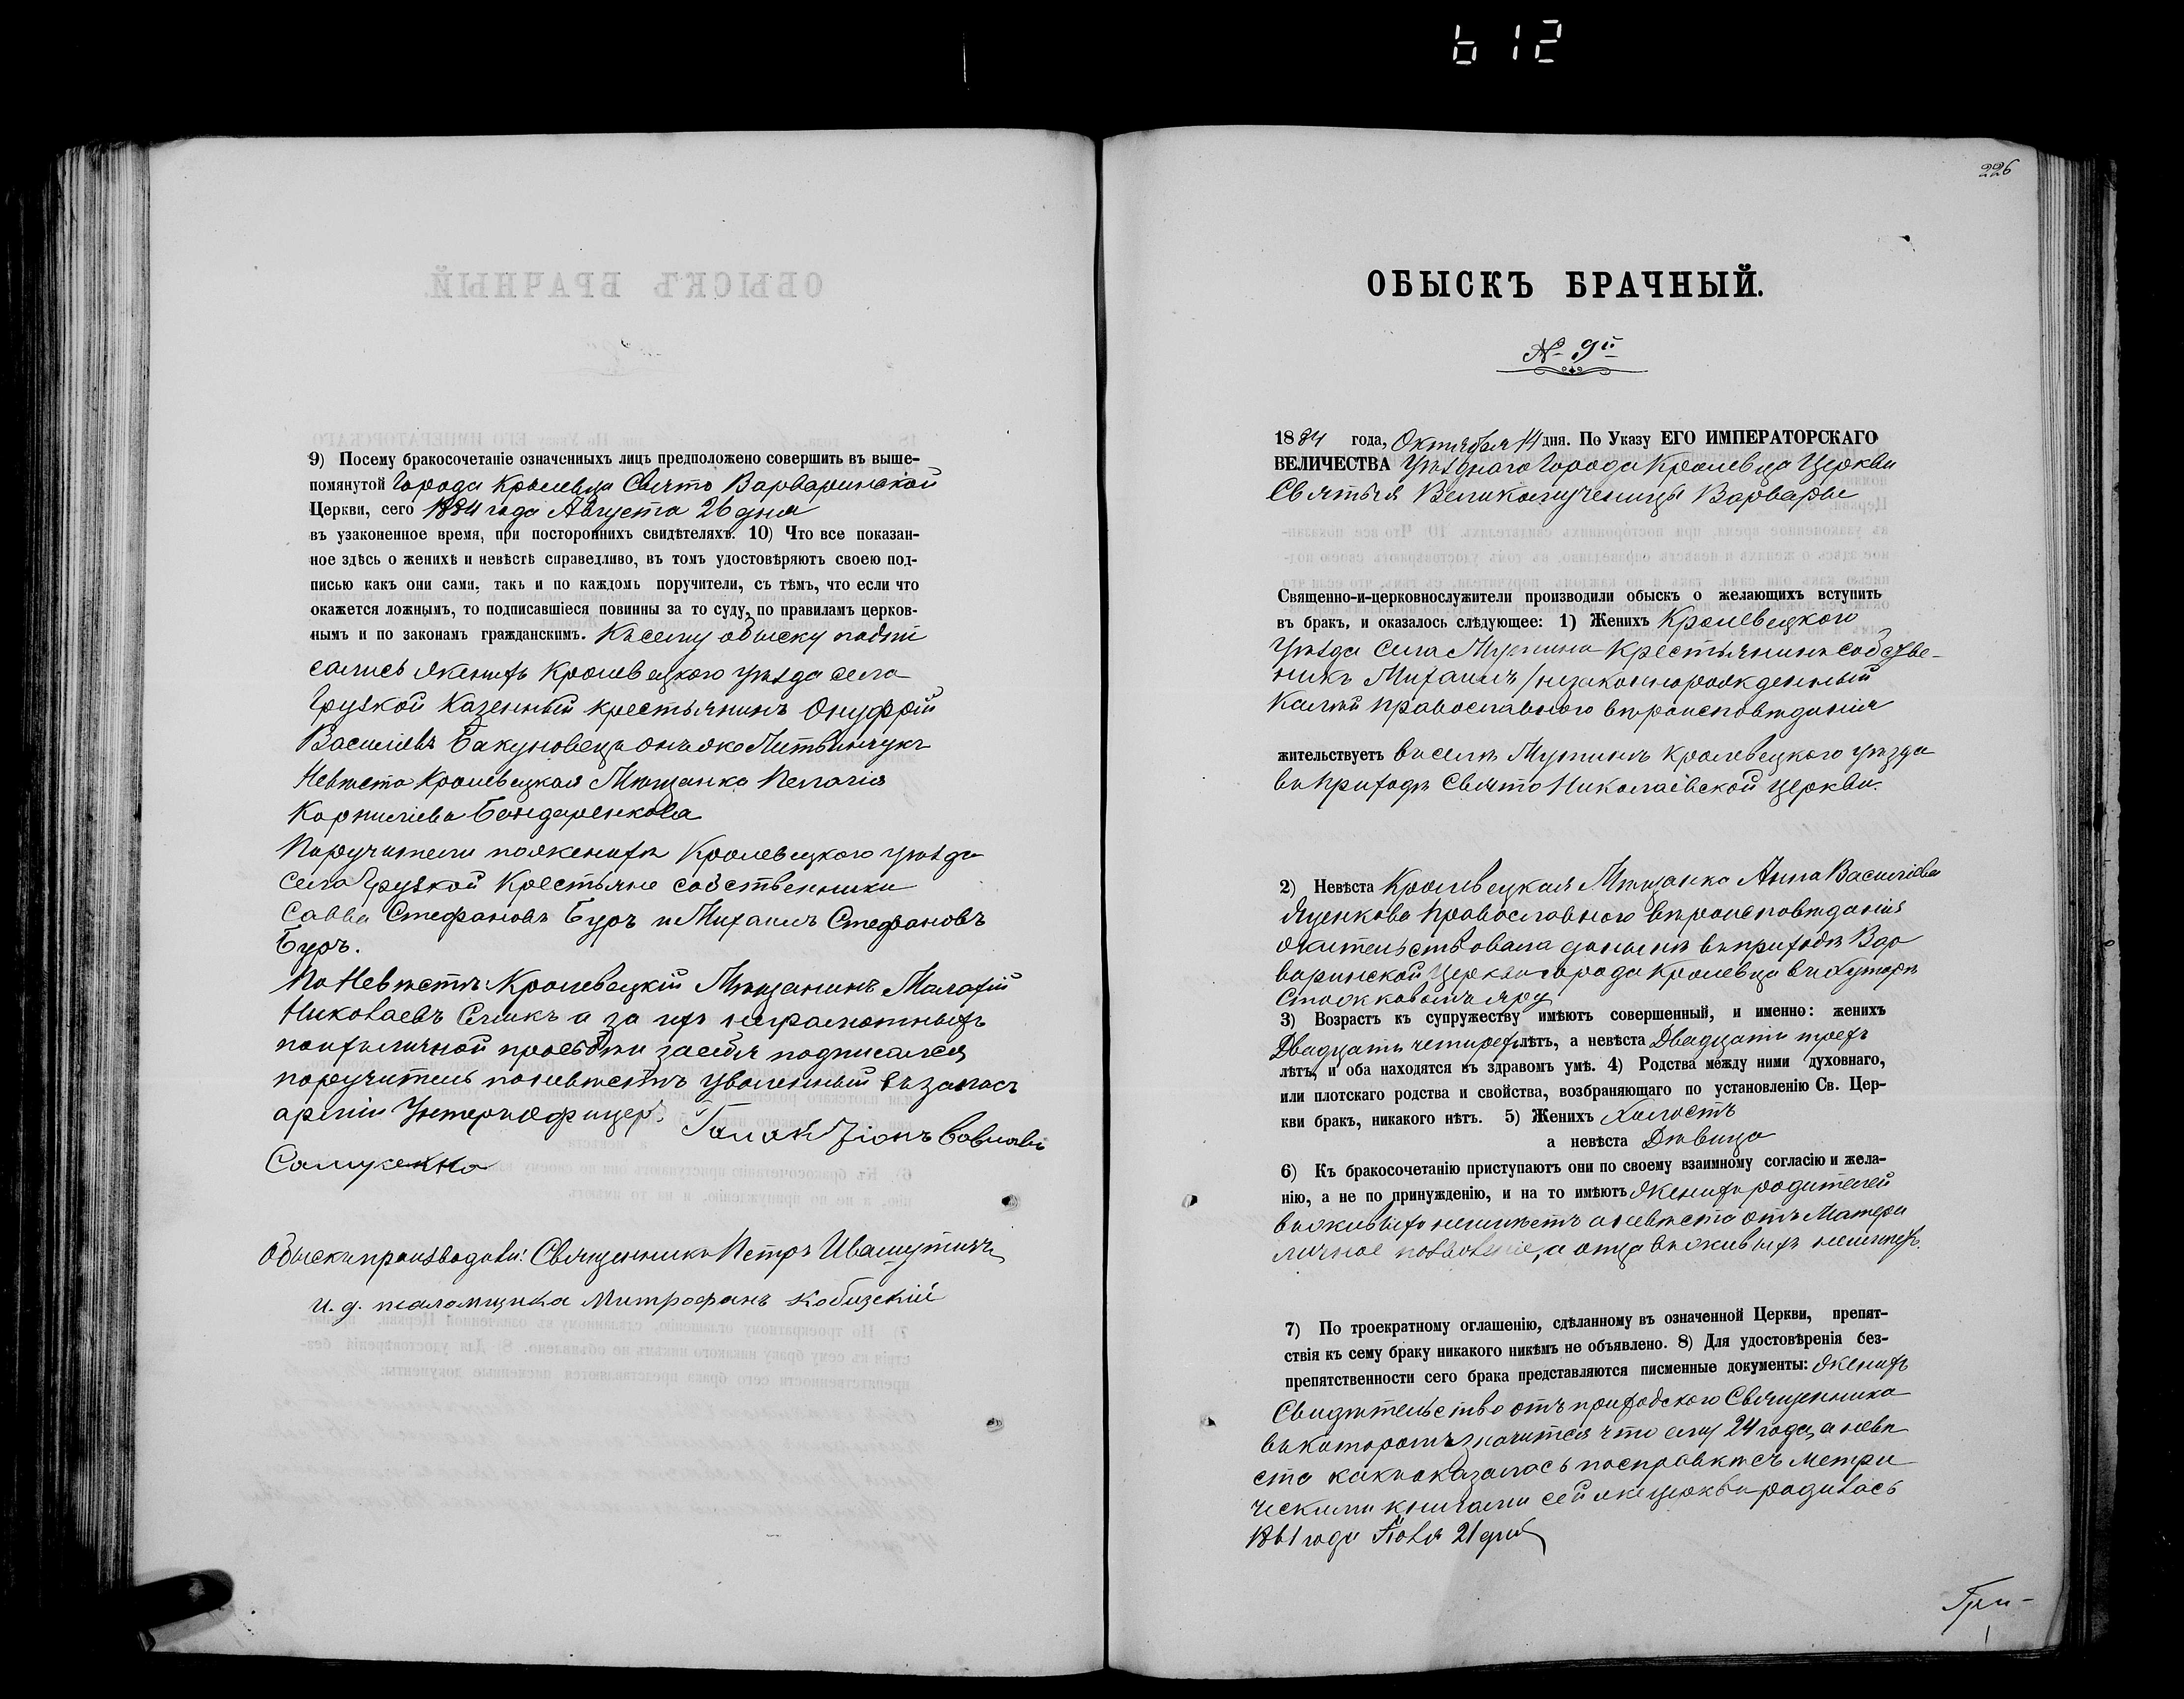 612
9) Посему бракосочетаніе означенныхъ лицъ предположено совершить въ выше-
помянутой Города Кролевца Свято Варваринской
Церкви, сего 1884 года Августа 26 дня
въ узаконенное время, при постороннихъ свидѣтеляхъ. 10) Что все показан-
ное здѣсь о женихѣ и невѣстѣ справедливо, въ томъ удостовѣряютъ своею под-
писью какъ они сами, такъ и по каждомъ поручители, съ тѣмъ, что если что
окажется ложнымъ, то подписавшіеся повинны за то суду, по правиламъ церков-
нымъ и по законамъ гражданскимъ. Къ сему обыску подпи
сались Женихъ Кролевецкого уѣзда села
Грузкой Казенный крестьянинъ Онуфрій
Василіевъ Бакуновецъ онъ же Литвинчукъ
Невѣста Кролевецкая Мѣщанка Пелагія
Корниліева Бондаренкова
Поручители по женихѣ Кролевецкого уѣзда
села Грузкой Крестьяне собственники
Савва Стефановъ Буръ и Михаилъ Стефановъ
Буръ.
По Невѣстѣ: Кролевецкій Мѣщанинъ Малафій
Николаевъ а за ихъ неграмотныхъ
по ихъ личной прозбѣ и за себя подписался
поручитель по невѣстѣ уволенный въ запасъ
арміи Унтеръ офицеръ
Самусенко
Обыскъ производили: Священникъ Петръ Ивашутичъ
и. д. псаломщика Митрофанъ Кобизскій
226
ОБЫСКЪ БРАЧНЫЙ.
№ 9й
1884 года, Октября 14 дня. По Указу ЕГО ИМПЕРАТОРСКАГО
ВЕЛИЧЕСТВА Уѣзднаго Города Кролевца Церкви
Святыя Великомученицы Варвары
Священно-и-церковнослужители производили обыскъ о желающихъ вступить
въ бракъ, и оказалось слѣдующее: 1) Женихъ Кролевецкого
Уѣзда Села Мутина Крестьянинъ собстве-
никъ Михаилъ /незаконнорожденный
православного вѣроисповѣданія
жительствуетъ въ селѣ Мутинѣ Кролевецкого уѣзда
въ приходѣ Свято Николаевской церкви.
2) Невѣста Кролевецкая Мѣщанка Анна Василіева
Яценкова православного вѣроисповѣданія
жительствовала донынѣ въ приходѣ Вар
варинской Церкви города Кролевца въ хуторѣ
яру
3) Возрастъ къ супружеству имѣютъ совершенный, и именно: женихъ
Двадцать четырехъ лѣтъ, а невѣста Двадцать трехъ
лѣтъ, и оба находятся въ здравомъ умѣ. 4) Родства между ними духовнаго,
или плотскаго родства и свойства, возбраняющаго по установленію Св. Цер-
кви бракъ, никакого нѣтъ. 5) Женихъ Холостъ
а невѣста Дѣвица
6) Къ бракосочетанію приступаютъ они по своему взаимному согласію и жела-
нію, а не по принужденію, и на то имѣютъ Женихъ родителей
въ живыхъ неимѣетъ а невѣста отъ Матери
личное позволеніе, а отца въ живыхъ неимѣетъ.
7) По троекратному оглашенію, сдѣланному въ означенной Церкви, препят-
ствія къ сему браку никакого никѣмъ не объявлено. 8) Для удостовѣренія без-
препятственности сего брака представляются писменные документы: Женихъ
Свидѣтельство отъ приходского Священника
въ которомъ значится что ему 24 года, а невѣ
ста какъ оказалось по справкѣ съ метри
ческими книгами сей же церкви родилась
1861 года Іюля 21 дня